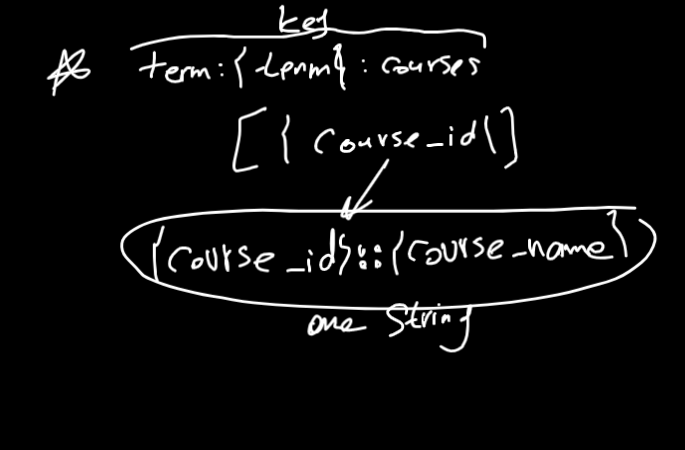 key
term:{term}:courses
[{course_id}]
{course_id}::{course_name}
one string